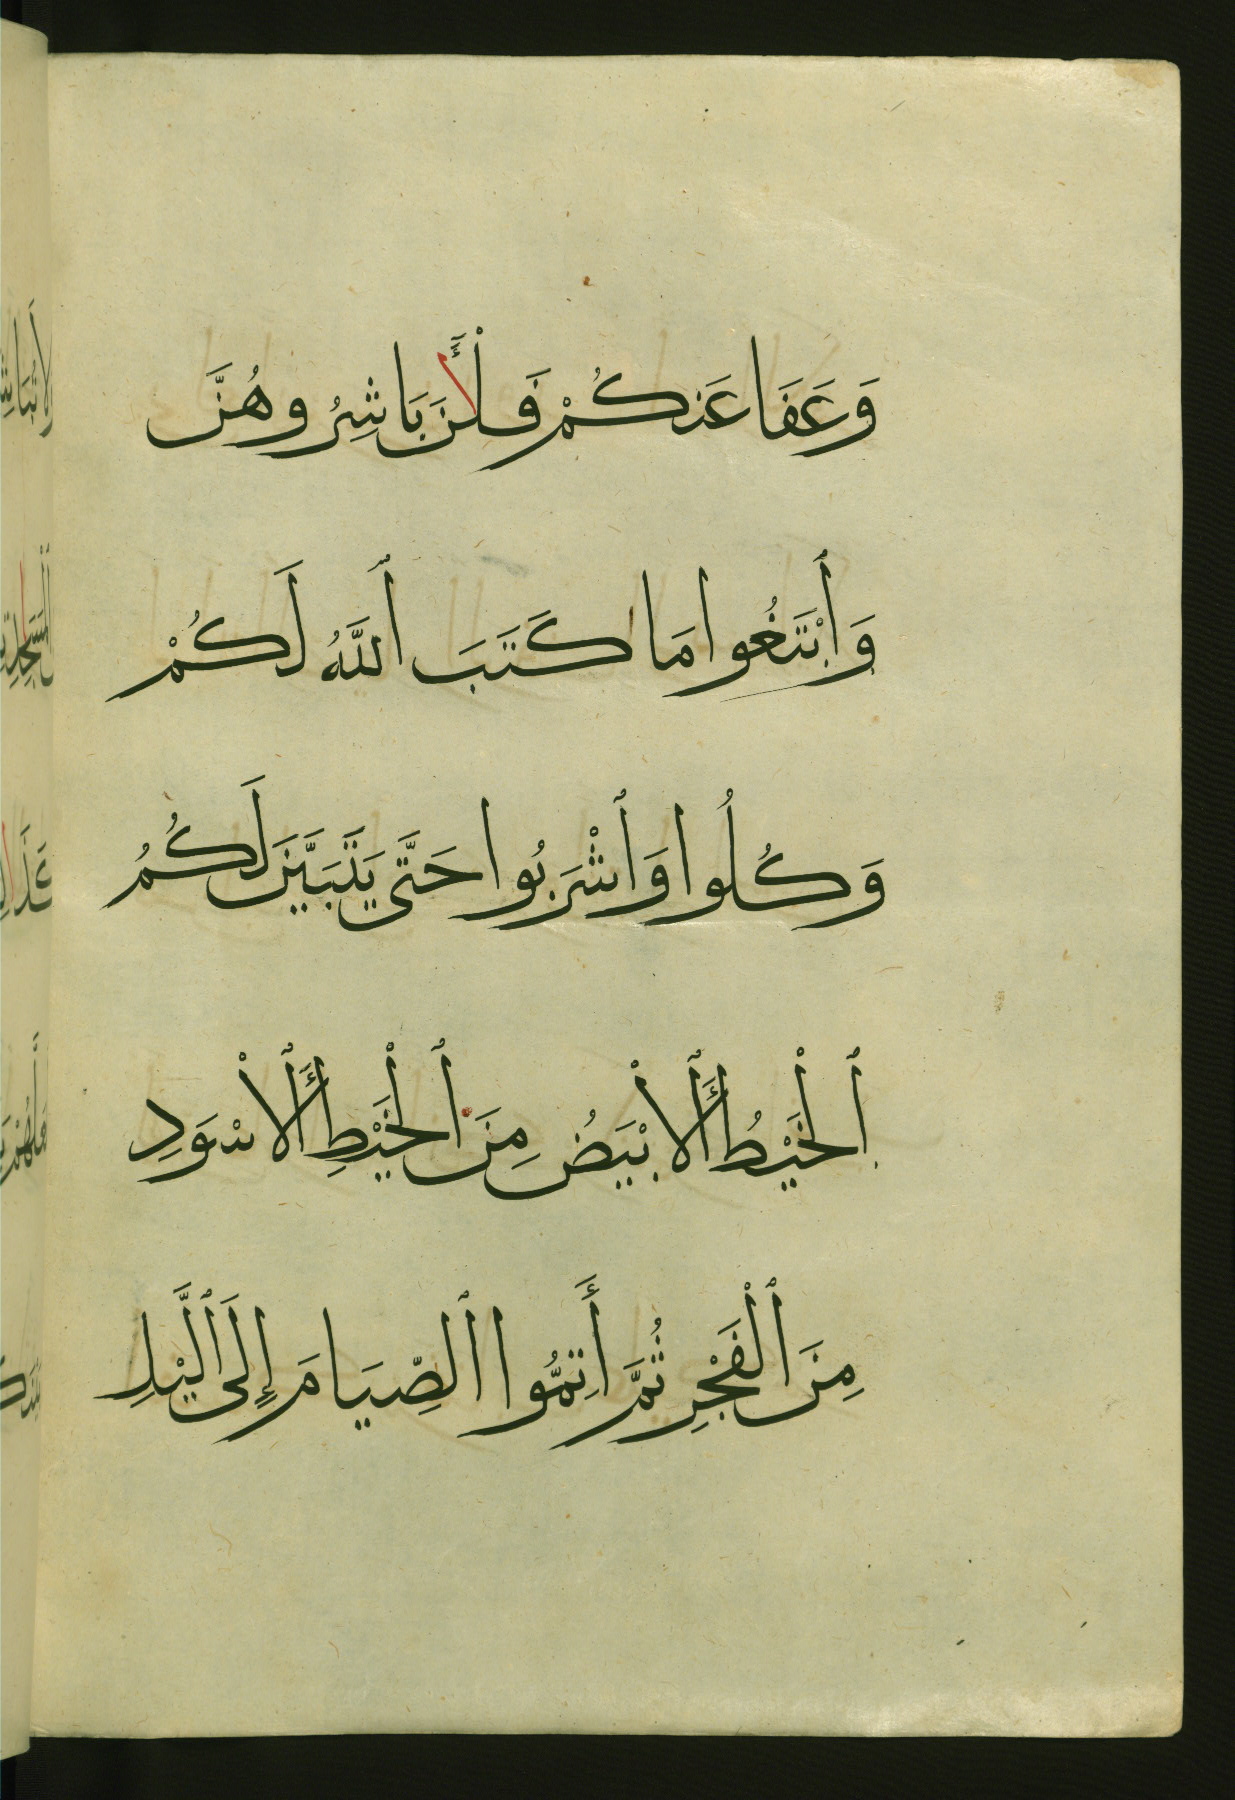 وَعَفَا عَنكُمْ فَلْأَٰنَ بَاشِرُوهُنَّ
وَٱبْتَغُوا مَا كَتَبَ ٱللَّهُ لَكُمْ
وَكُلُوا وَٱشْرَبُوا حَتَّى يَتَبَيَّنَ لَكُمُ
ٱلْخَيْطُ ٱلْأَبْيَضُ مِنَ ٱلْخَيْطِ ٱلْأَسْوَدِ
مِنَ ٱلْفَجْرِ ثُمَّ أَتِمُّوا ٱلصِّيَامَ إِلَى ٱلَّيْلِ